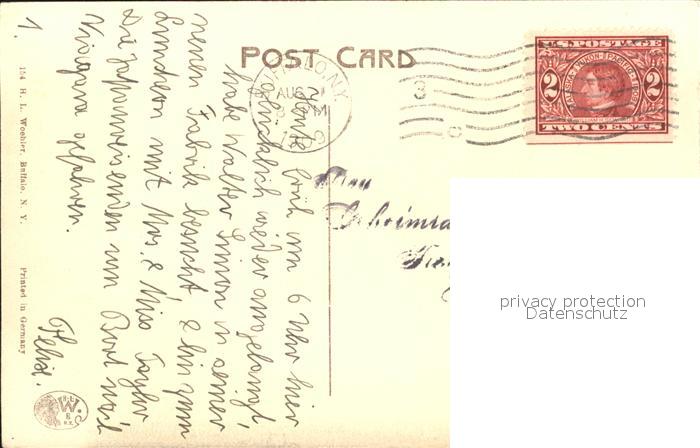 POST CARD
BUFFALO, N.Y.
AUG
1909
3
U.S. POSTAGE
ALASKA YUKON PACIFIC
1909
2 2
TWO CENTS
Heute früh um 6 Uhr hier
glücklich wieder angelangt,
habe Walter Simon in seiner
neuen Fabrik besucht & bin zum
Luncheon mit Mrs. & Miss Taylor
Die per Boot nach
Niagara gefahren.
1.
Felix.
Frau
Geheimra
privacy protection
Datenschutz
154 H. L. Woehler, Buffalo, N. Y.
Printed in Germany